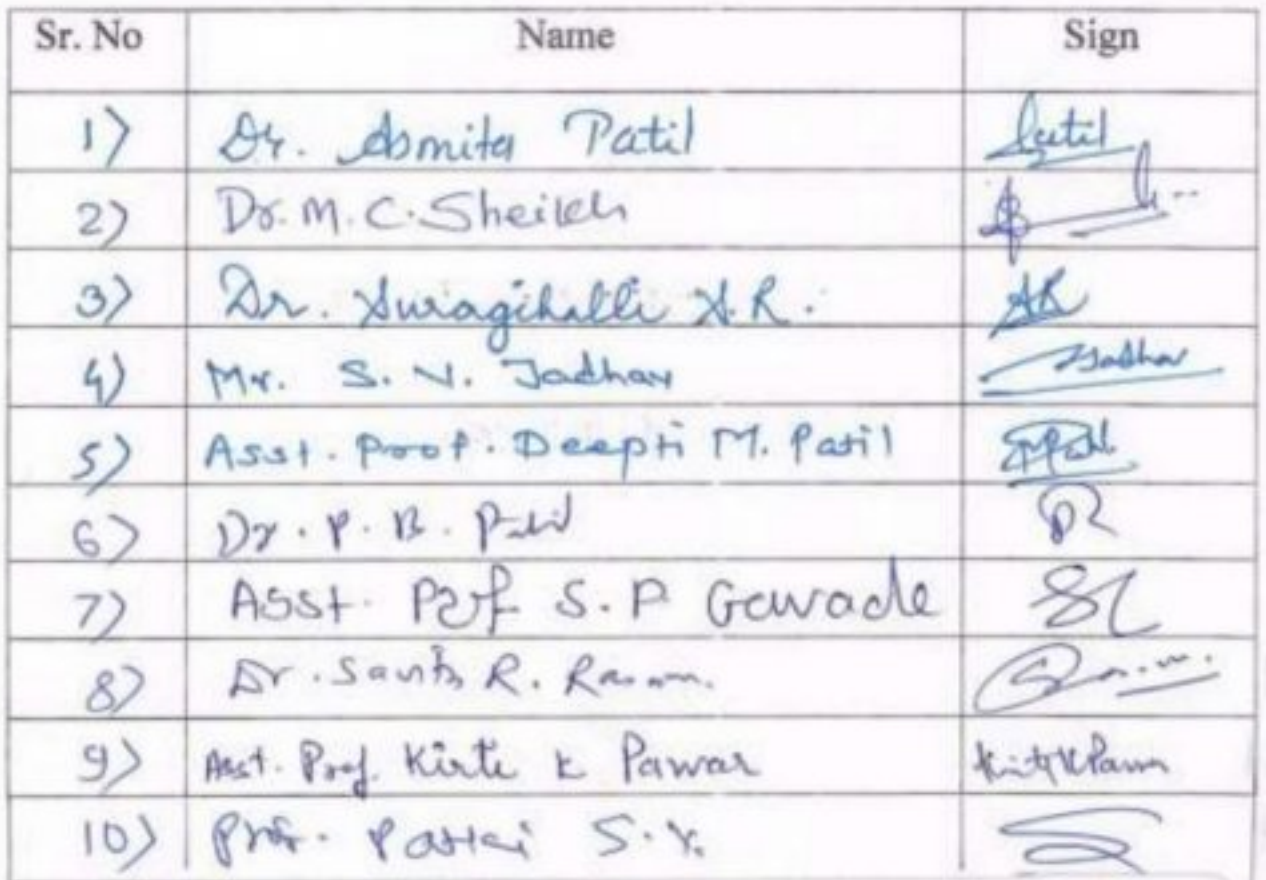 Sr. No Name Sign
1) Dr. Asmita Patil Patil
2) Dr. M. C. Sheikh
3) Dr. Suragihalli S. R. SR
4) Mr. S. V. Jadhav Jadhav
5) Asst. Prof. Deepti M. Patil
6) Dr. P. B. Patil
7) Asst. Prof S. P Gawade
8) Dr. R.
9) Asst. Prof. Kirti K Pawar Kirti K Pawar
10) Prof. S. Y.